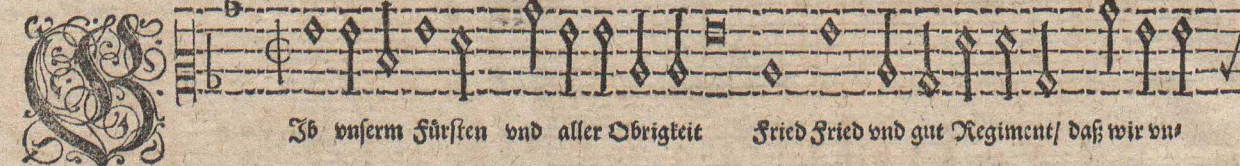 GIb vnſerm Fürſten vnd aller Obrigkeit Fried Fried vnd gut Regiment/ daß wir vn⸗